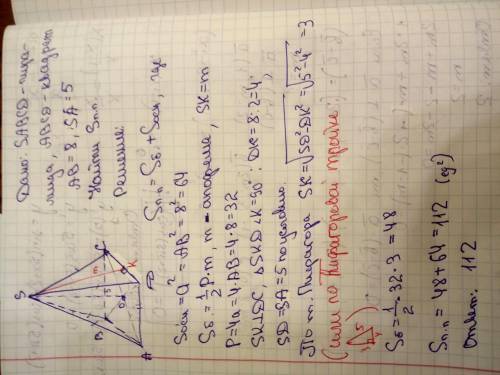 Дано: SABCD - пира-
мида, ABCD - квадрат
AB = 8, SA = 5
Найти Sп.п
Решение:
S
B
C
m
K
5
O
A
D
Sп.п = Sб + Sосн, где
Sосн = a² = AB² = 8² = 64
Sб = 1/2 P·m, m - апофема, SK = m
P = 4a = 4·AB = 4·8 = 32
SK⊥DC, ΔSKD ∠K = 90°: DK = 8:2 = 4,
SD = SA = 5 по условию.
По т. Пифагора SK = √SD²-DK² = √5²-4² = 3
(или по Пифагоровой тройке:
5
4
Sб = 1/2 · 32 · 3 = 48
Sп.п = 48 + 64 = 112 (ед²)
Ответ: 112